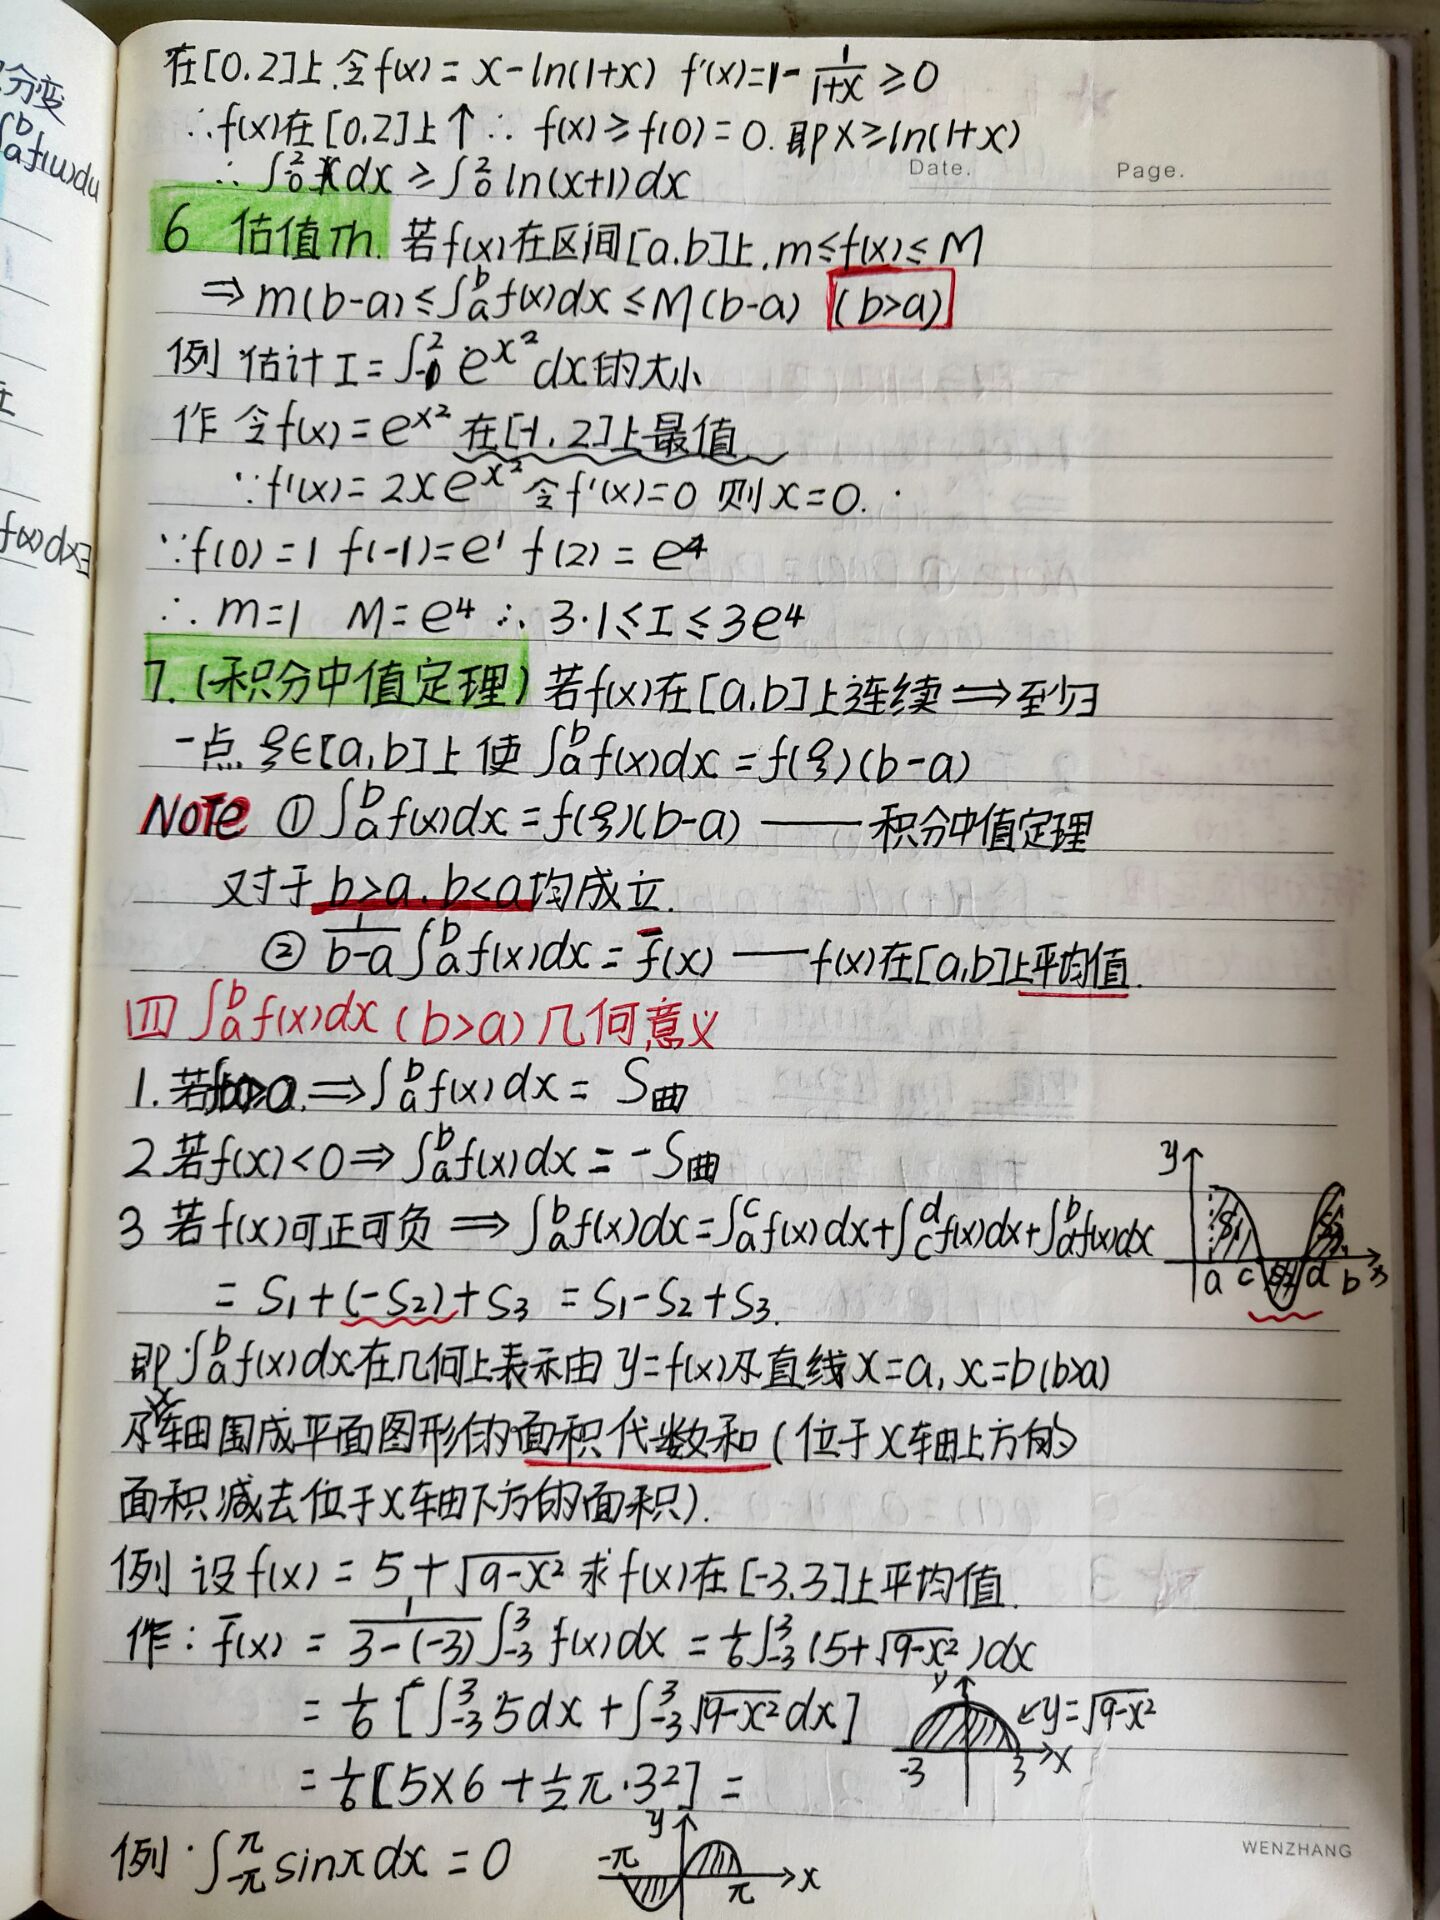 分变
∫ₐᵇf(u)du
f(x)dx
在[0,2]上,令f(x)=x-ln(1+x) f'(x)=1-1/(1+x)≥0
∴f(x)在[0,2]上↑∴f(x)≥f(0)=0.即x≥ln(1+x)
Date. Page.
∴∫₀²xdx≥∫₀²ln(x+1)dx
6 估值Th. 若f(x)在区间[a,b]上,m≤f(x)≤M
⇒m(b-a)≤∫ₐᵇf(x)dx≤M(b-a) (b>a)
例 估计I=∫₋₁²e^(x²)dx的大小
作 令f(x)=e^(x²)在[-1,2]上最值
∵f'(x)=2xe^(x²)令f'(x)=0则x=0.
∵f(0)=1 f(-1)=e¹ f(2)=e⁴
∴m=1 M=e⁴∴3·1≤I≤3e⁴
7.(积分中值定理)若f(x)在[a,b]上连续⇒至少∃
一点ξ∈[a,b]上使∫ₐᵇf(x)dx=f(ξ)(b-a)
Note ①∫ₐᵇf(x)dx=f(ξ)(b-a)——积分中值定理
对于b>a,b<a均成立.
②1/(b-a)∫ₐᵇf(x)dx=f̄(x)——f(x)在[a,b]上平均值.
四∫ₐᵇf(x)dx(b>a)几何意义
1.若f(x)>0⇒∫ₐᵇf(x)dx=S曲
2.若f(x)<0⇒∫ₐᵇf(x)dx=-S曲
3 若f(x)可正可负⇒∫ₐᵇf(x)dx=∫ₐᶜf(x)dx+∫_c^d f(x)dx+∫_d^b f(x)dx
=S₁+(-S₂)+S₃=S₁-S₂+S₃.
y S₁ S₂ S₃ a c d b x
即∫ₐᵇf(x)dx在几何上表示由y=f(x)及直线x=a,x=b(b>a)
及x轴围成平面图形的面积代数和(位于x轴上方的
面积减去位于x轴下方的面积).
例 设f(x)=5+√(9-x²)求f(x)在[-3,3]上平均值.
作:f̄(x)=1/(3-(-3))∫₋₃³f(x)dx=1/6∫₋₃³(5+√(9-x²))dx
=1/6[∫₋₃³5dx+∫₋₃³√(9-x²)dx]
y y=√(9-x²) -3 3 x
=1/6[5×6+1/2π·3²]=
例·∫_(-π)^π sinxdx=0
y -π π x
WENZHANG